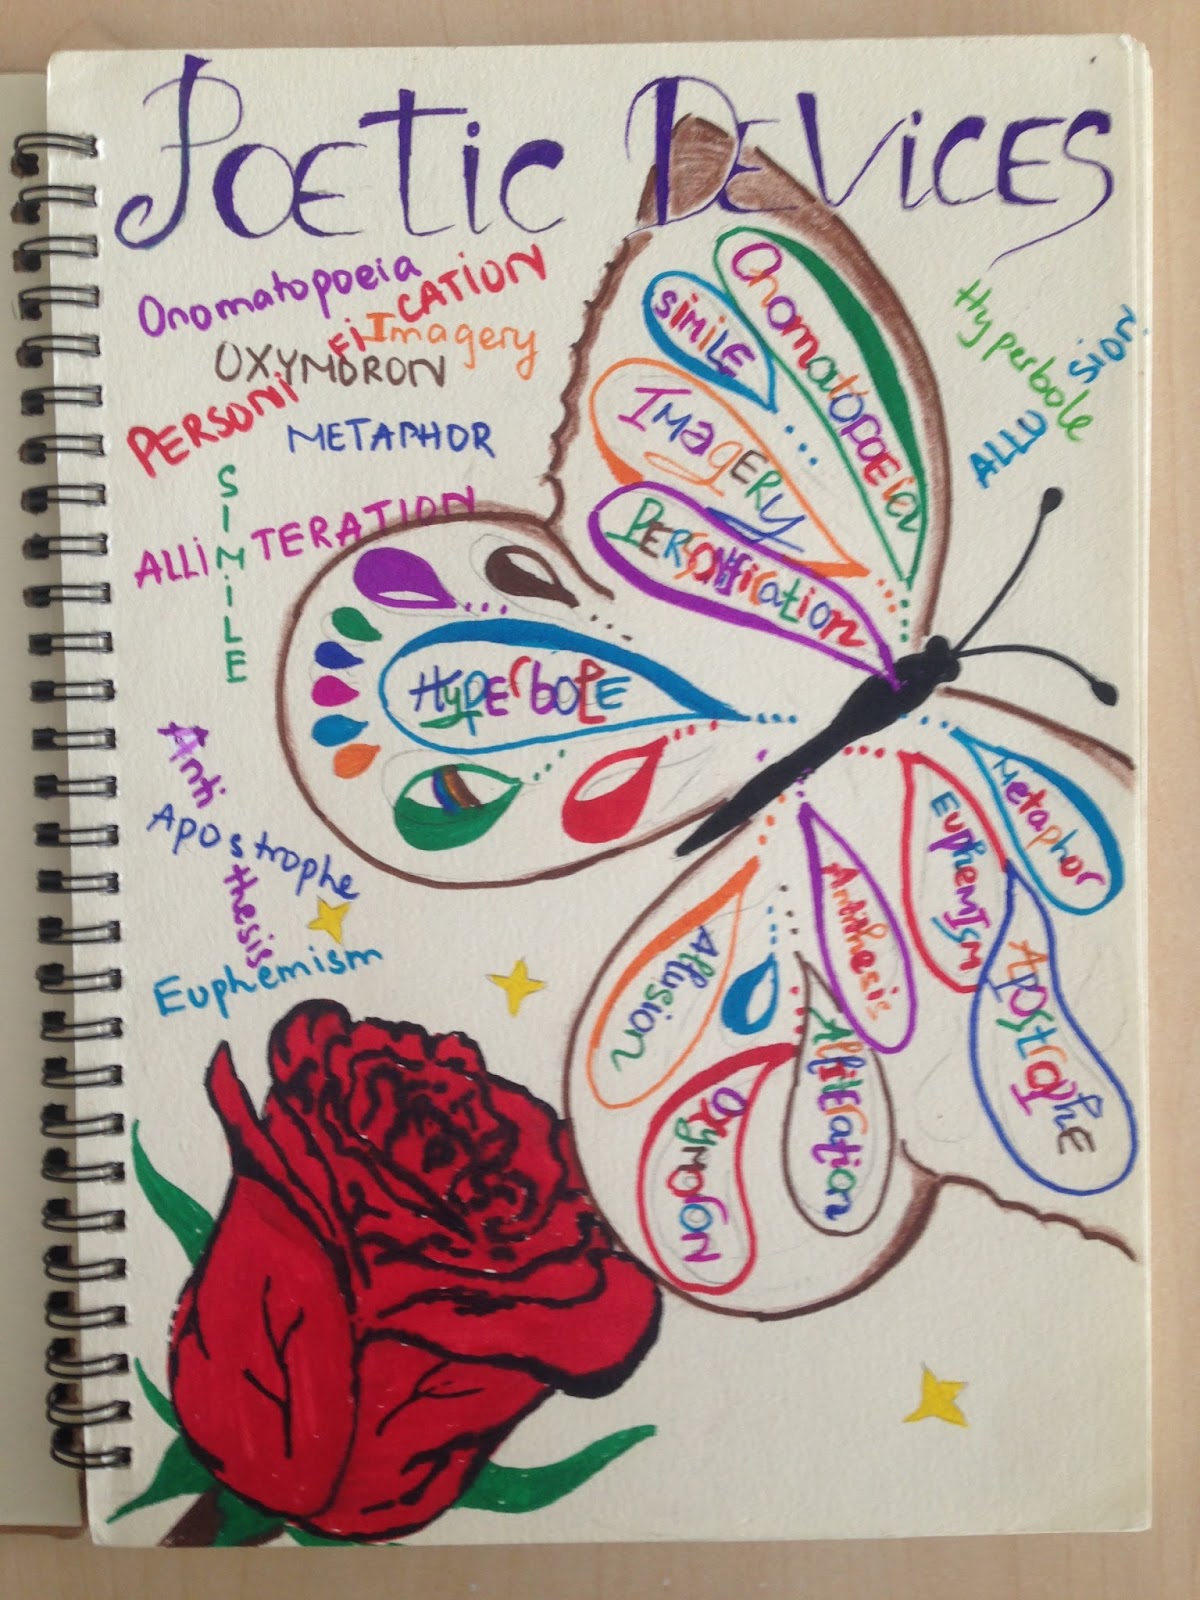 Poetic Devices
Onomatopoeia
PERSONiFiCATION
Imagery
OXYMORON
METAPHOR
SIMiLE
ALLiTERATION
Hyperbole
ALLUsion
Antithesis
Apostrophe
Euphemism
Onomatopoeia
SiMiLE
IMagERY
PERSOnification
HypErbolE
Metaphor
EuphEMISM
Antithesis
APOStrophE
Allusion
AlliTERation
OxyMORON